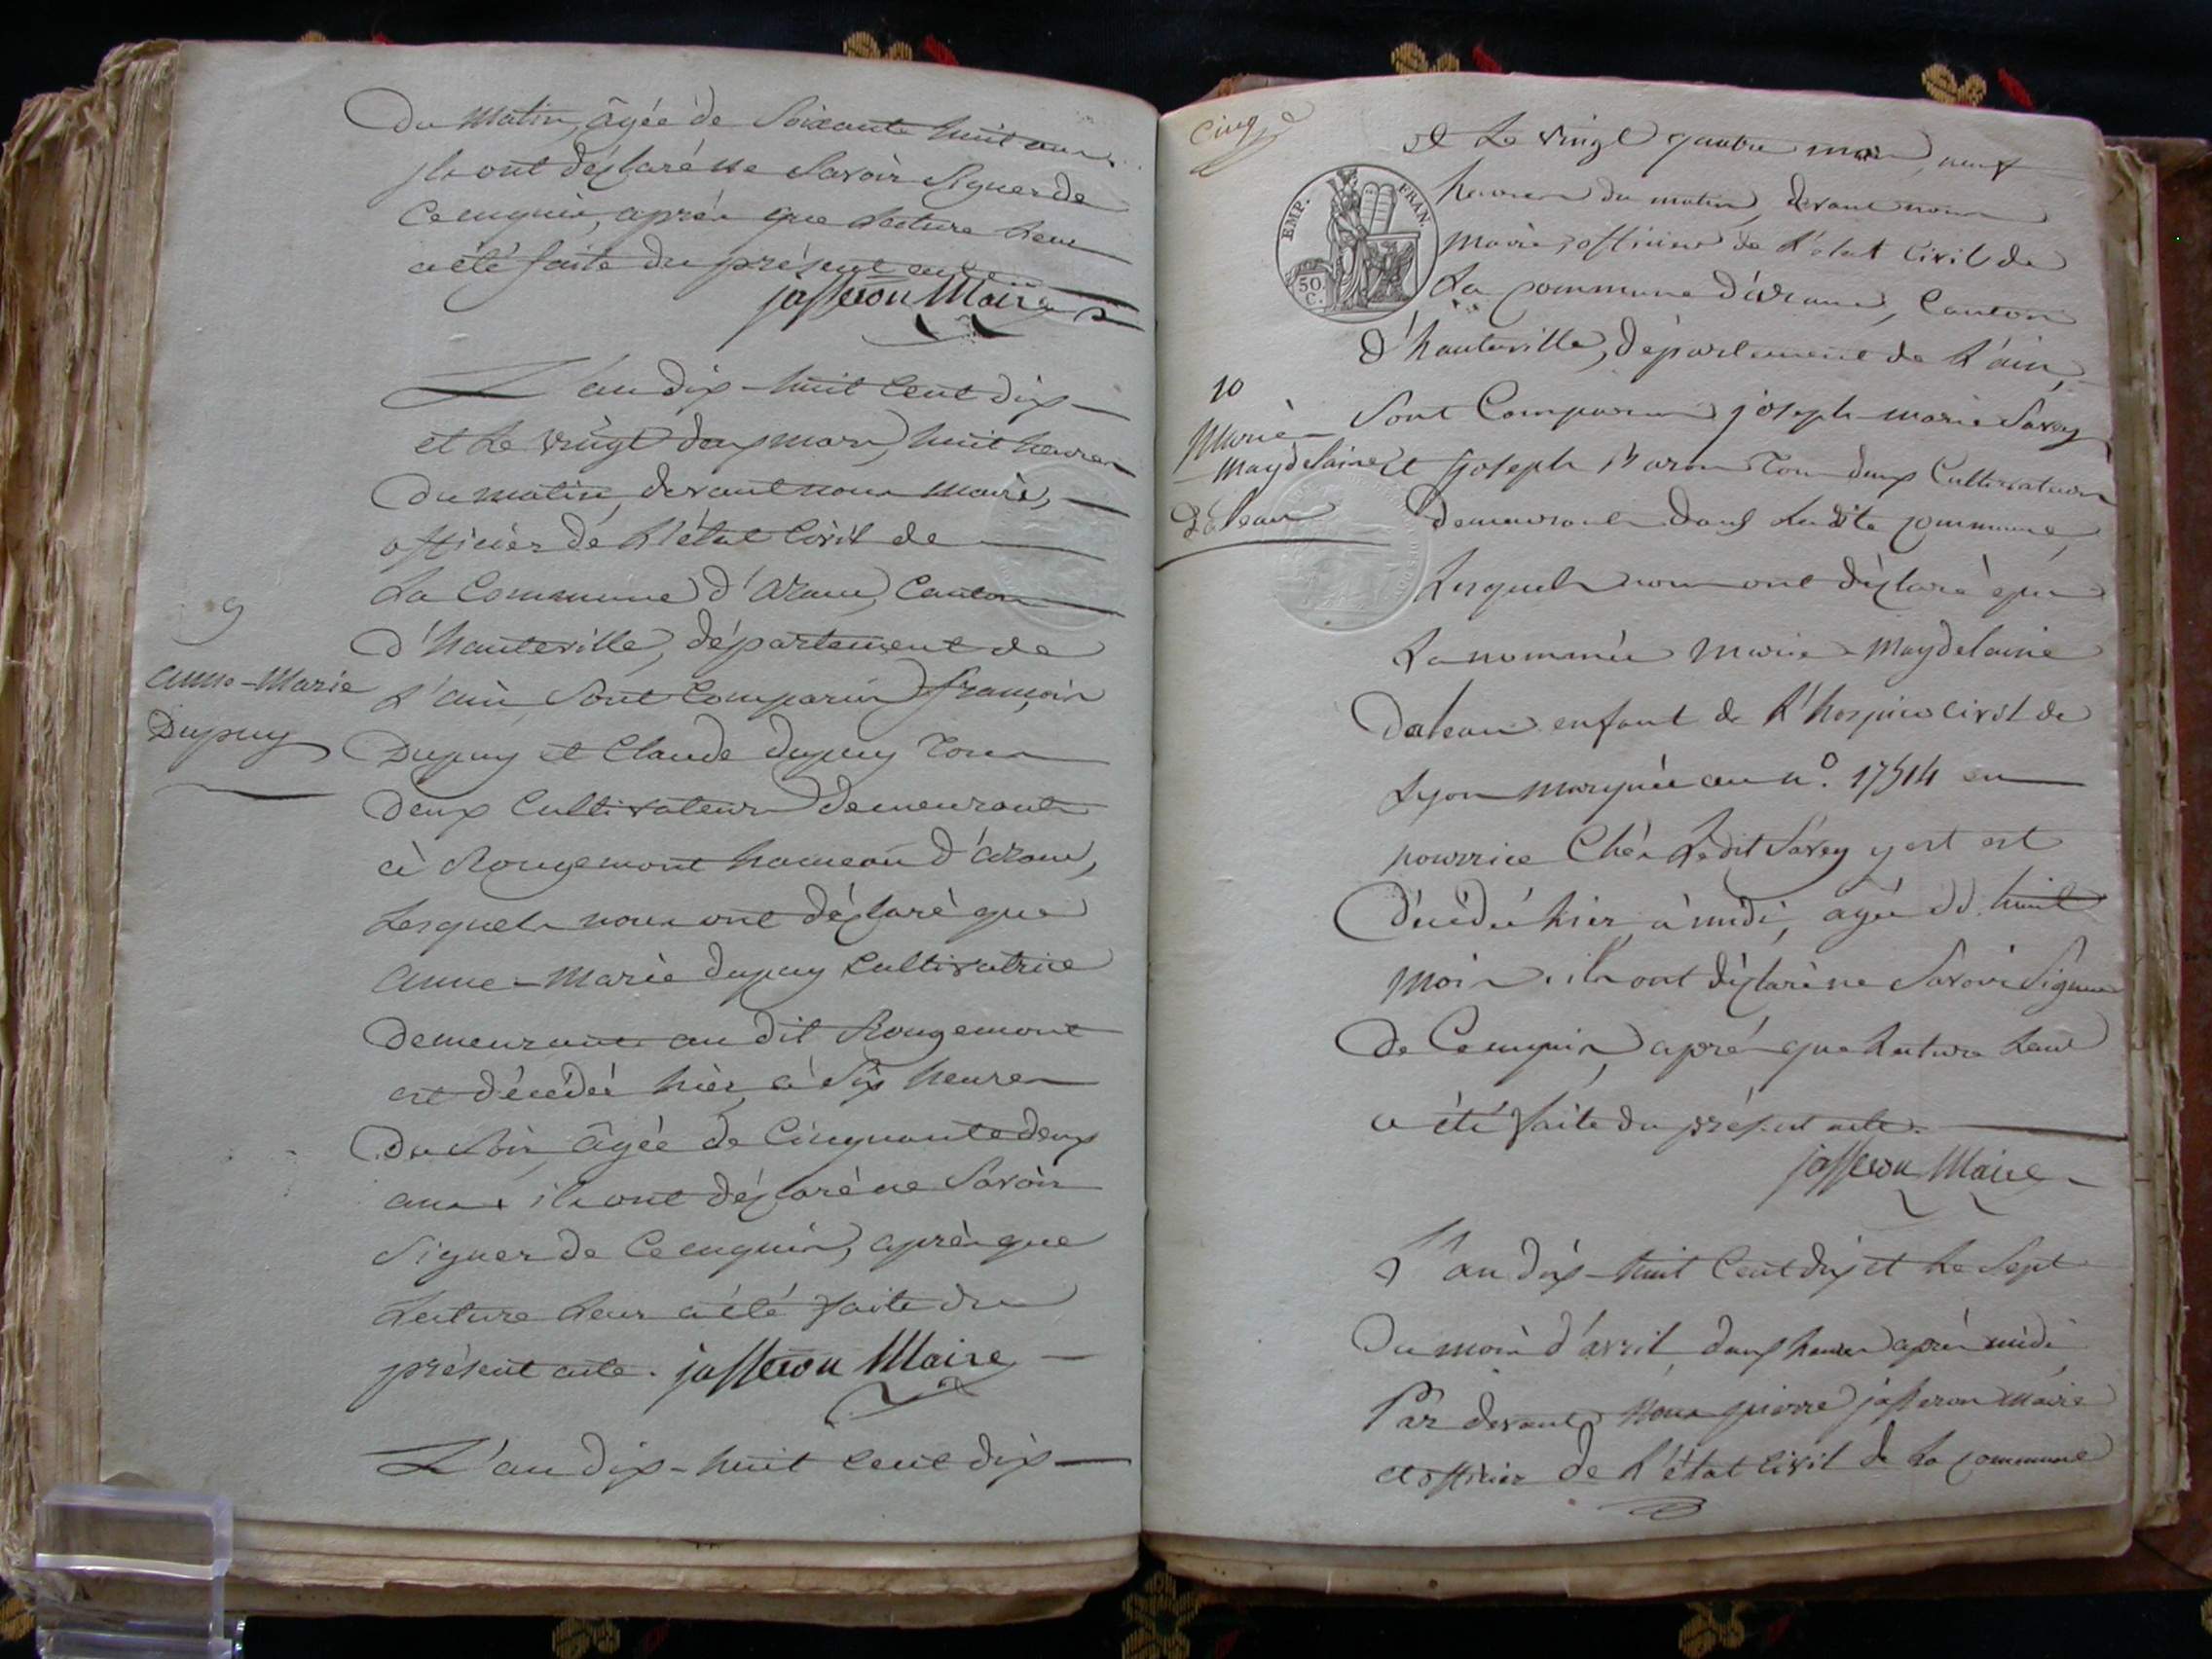 Du matin, âgée de Soixante huit ans.
ils ont déclaré ne Savoir Signer de
Ce enquis, après que Lecture Leur
a été faite du présent acte
jasseron Maire
L'an dix-huit Cent dix
et Le vingt deux mars, huit heures
du matin, devant nous maire,
officier de L'état Civil de
La Commune d'aranc, Canton
d'hauteville, département de
L'ain, Sont Comparus françois
Dupuy et Claude dupuy Tous
deux Cultivateurs demeurants
à Rougemont hameau d'aranc,
Lesquels nous ont déclaré que
anne-Marie dupuy Cultivatrice
demeurante au dit Rougemont
est décédée hier, à Six heures
Du Soir, âgée de Cinquante deux
ans, ils ont déclaré ne Savoir
Signer de Ce enquis, après que
Lecture Leur a été faite du
présent acte. jasseron Maire
L'an dix-huit Cent dix
9
anne-Marie
Dupuy
Cinq
et Le vingt quatre mars, neuf
heures du matin, devant nous
maire, officier de L'état Civil de
La Commune d'aranc, Canton
d'hauteville, département de L'ain,
Sont Comparus joseph marie Savey
et joseph Tous deux Cultivateurs
demeurants dans Ladite Commune,
Lesquels nous ont déclaré que
La nommée Marie-Maydelaine
Daleau enfant de L'hospice civil de
Lyon marquée au n.° 17514 en
nourrice Chés Ledit Savey y est est
décédée hier à midi, agée de huit
mois, ils ont déclaré ne Savoir Signer
de Ce enquis, après que Lecture Leur
a été faite du présent acte.
jasseron Maire
L'an dix-huit Cent dix et Le Sept
Du mois d'avril deux heures après midi
Par devant Nous pierre jasseron Maire
et officier de L'état Civil de La Commune
10
Marie
Maydelaine
Daleau
EMP. FRAN.
50 C.